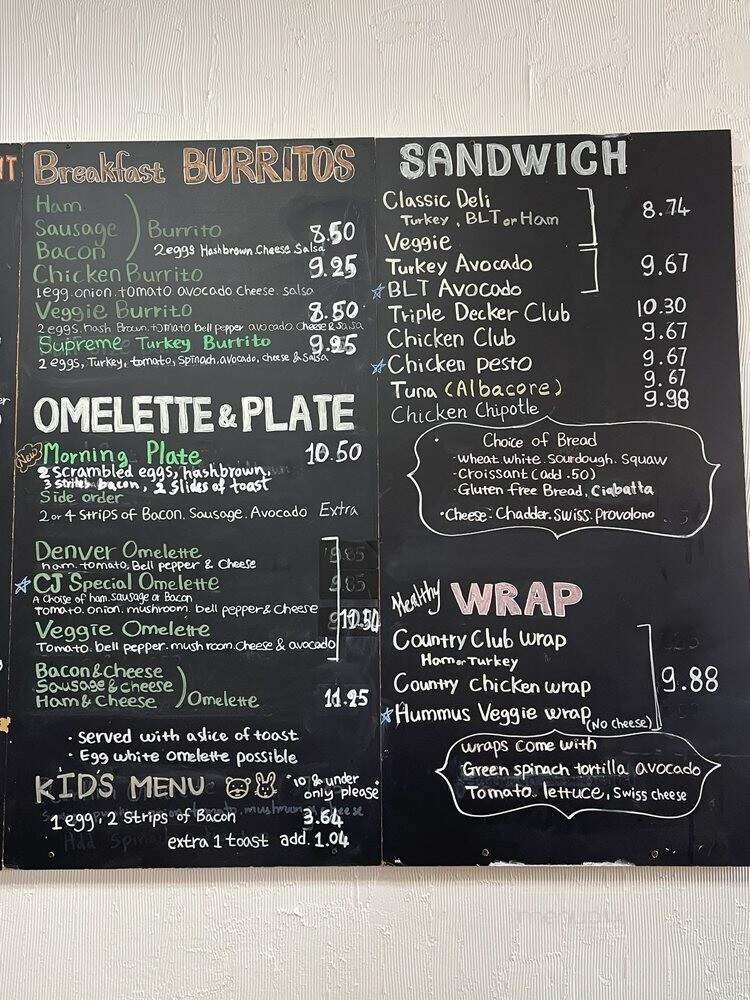 NT
Breakfast BURRITOS
Ham
Sausage
Bacon
Burrito 8.50
2eggs Hashbrown.Cheese Salsa
Chicken Burrito 9.25
1egg.onion.tomato avocado Cheese.salsa
Veggie Burrito 8.50
2eggs.hash Brown.tomato bell pepper avocado cheese & salsa
Supreme Turkey Burrito
2 eggs, Turkey, tomato, Spinach, avocado, cheese & Salsa
OMELETTE & PLATE
New
Morning Plate 10.50
2 scrambled eggs, hashbrown,
3 strips bacon, 2 slides of toast
Side order
2 or 4 Strips of Bacon. Sausage. Avocado Extra
Denver Omelette
ham.tomato.Bell pepper & Cheese
CJ Special Omelette
A choise of ham.sausage or Bacon
Tomato.onion.mushroom.bell pepper & Cheese
Veggie Omelette
Tomato.bell pepper.mushroom.Cheese & avocado
10.50
Bacon & Cheese
Sausage & cheese
Ham & Cheese
Omelette
· Served with a slice of toast
· Egg white omelette possible
KID'S MENU
"10 & under
only please"
1 egg, 2 Strips of Bacon 3.64
extra 1 toast add. 1.04
SANDWICH
Classic Deli
Turkey, BLT or Ham
Veggie
8.74
Turkey Avocado
BLT Avocado
9.67
Triple Decker Club 10.30
Chicken Club 9.67
Chicken Pesto 9.67
Tuna (Albacore) 9.67
Chicken Chipotle 9.98
· Choice of Bread
- Wheat.white.Sourdough.Squaw
- Croissant (add .50)
- Gluten free Bread, Ciabatta
· Cheese: Chadder.Swiss.Provolono
Healthy WRAP
Country Club wrap
Ham or Turkey
Country Chicken wrap
Hummus Veggie wrap (No cheese)
9.88
wraps come with
Green spinach tortilla avocado
Tomato. lettuce, Swiss cheese